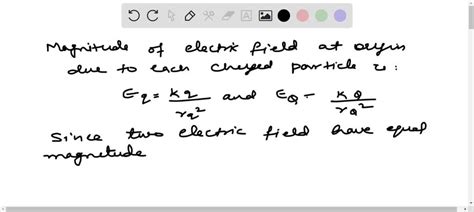 Magnitude of electric field at origin
due to each charged particle is:
Eq = kq/rq² and EQ = kQ/rQ²
Since two electric field have equal
magnitude